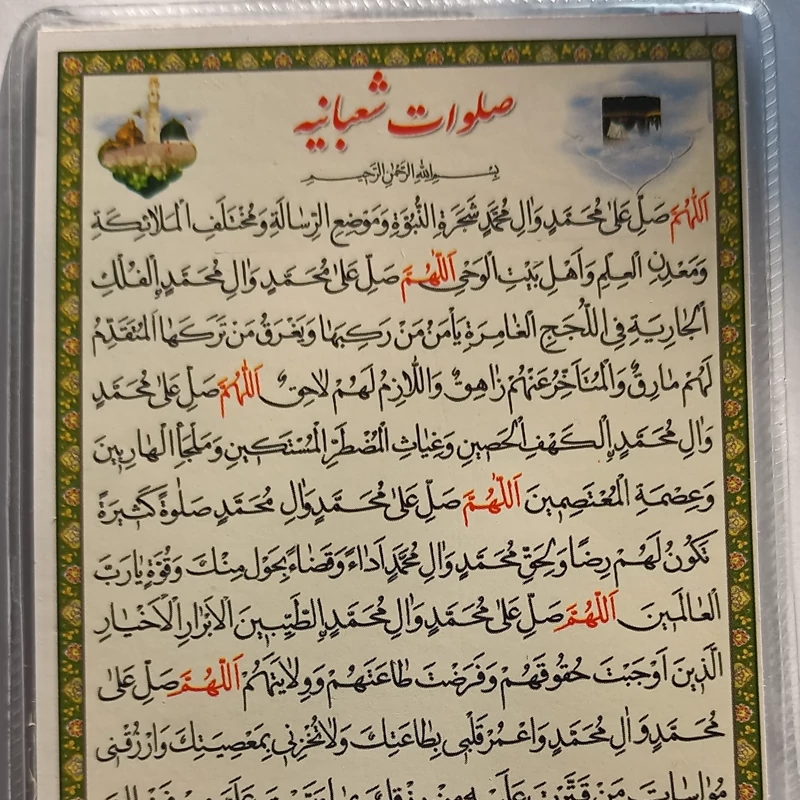 صلوات شعبانیه
بِسْمِ اللهِ الرَّحْمٰنِ الرَّحِيمِ
اَللّٰهُمَّ صَلِّ عَلىٰ مُحَمَّدٍ وَاٰلِ مُحَمَّدٍ شَجَرَةِ النُّبُوَّةِ وَمَوْضِعِ الرِّسالَةِ وَمُخْتَلَفِ الْمَلائِكَةِ
وَمَعْدِنِ الْعِلْمِ وَاَهْلِ بَيْتِ الْوَحْىِ اَللّٰهُمَّ صَلِّ عَلىٰ مُحَمَّدٍ وَاٰلِ مُحَمَّدٍ اِلْفُلْكِ
الْجارِيَةِ فِى اللُّجَجِ الْغامِرَةِ يَاْمَنُ مَنْ رَكِبَها وَيَغْرَقُ مَنْ تَرَكَهَا الْمُتَقَدِّمُ
لَهُمْ مٰارِقٌ وَالْمُتَاَخِّرُ عَنْهُمْ زٰاهِقٌ وَاللّازِمُ لَهُمْ لاحِقٌ اَللّٰهُمَّ صَلِّ عَلىٰ مُحَمَّدٍ
وَاٰلِ مُحَمَّدٍ اِلْكَهْفِ الْحَصينِ وَغِياثِ الْمُضْطَرِّ الْمُسْتَكينِ وَمَلْجَاَ الْهارِبينَ
وَعِصْمَةِ الْمُعْتَصِمينَ اَللّٰهُمَّ صَلِّ عَلىٰ مُحَمَّدٍ وَاٰلِ مُحَمَّدٍ صَلٰوةً كَثيرَةً
تَكُونُ لَهُمْ رِضًا وَلِحَقِّ مُحَمَّدٍ وَاٰلِ مُحَمَّدٍ اَداٰءً وَقَضاٰءً بِحَوْلٍ مِنْكَ وَقُوَّةٍ يٰا رَبَّ
الْعالَمينَ اَللّٰهُمَّ صَلِّ عَلىٰ مُحَمَّدٍ وَاٰلِ مُحَمَّدٍ اِلطَّيِّبينَ الْاَبْرٰارِ الْاَخْيٰارِ
الَّذينَ اَوْجَبْتَ حُقُوقَهُمْ وَفَرَضْتَ طٰاعَتَهُمْ وَوِلايَتَهُمْ اَللّٰهُمَّ صَلِّ عَلىٰ
مُحَمَّدٍ وَاٰلِ مُحَمَّدٍ وَاعْمُرْ قَلْبى بِطٰاعَتِكَ وَلاتُخْزِنى بِمَعْصِيَتِكَ وَارْزُقْنى